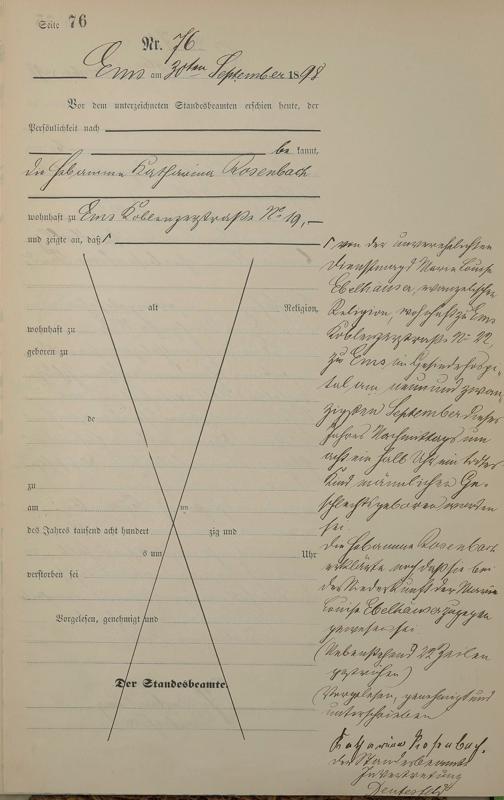 Seite 76
Nr. 76
Ems am 30ten September 1898
Vor dem unterzeichneten Standesbeamten erschien heute, der
Persönlichkeit nach
be kannt,
die Hebamme Katharina Rosenbach
wohnhaft zu Ems Koblenzerstraße No 19,
und zeigte an, daß
alt Religion,
wohnhaft zu
geboren zu
de
zu
am um
des Jahres tausend acht hundert zig und
s um Uhr
verstorben sei
Vorgelesen, genehmigt und
Der Standesbeamte.
von der unverehelichten
Dienstmagd Marie Louise
Ebelhäuser, evangelischer
Religion, wohnhaft zu Ems
Koblenzerstraße No 22
zu Ems, im
tal am neun und zwan-
zigsten September dieses
Jahres Nachmittags um
acht ein halb Uhr ein todtes
Kind männlichen Ge-
schlechts geboren worden
sei.
Die Hebamme Rosenbach
erklärte noch daß sie bei
der Niederkunft der Marie
Louise Ebelhäuser zugegen
gewesen sei
(Nebenstehend 22 Zeilen
gestrichen)
Vorgelesen, genehmigt und
unterschrieben
Katharina Rosenbach.
der Standesbeamte
In Vertretung